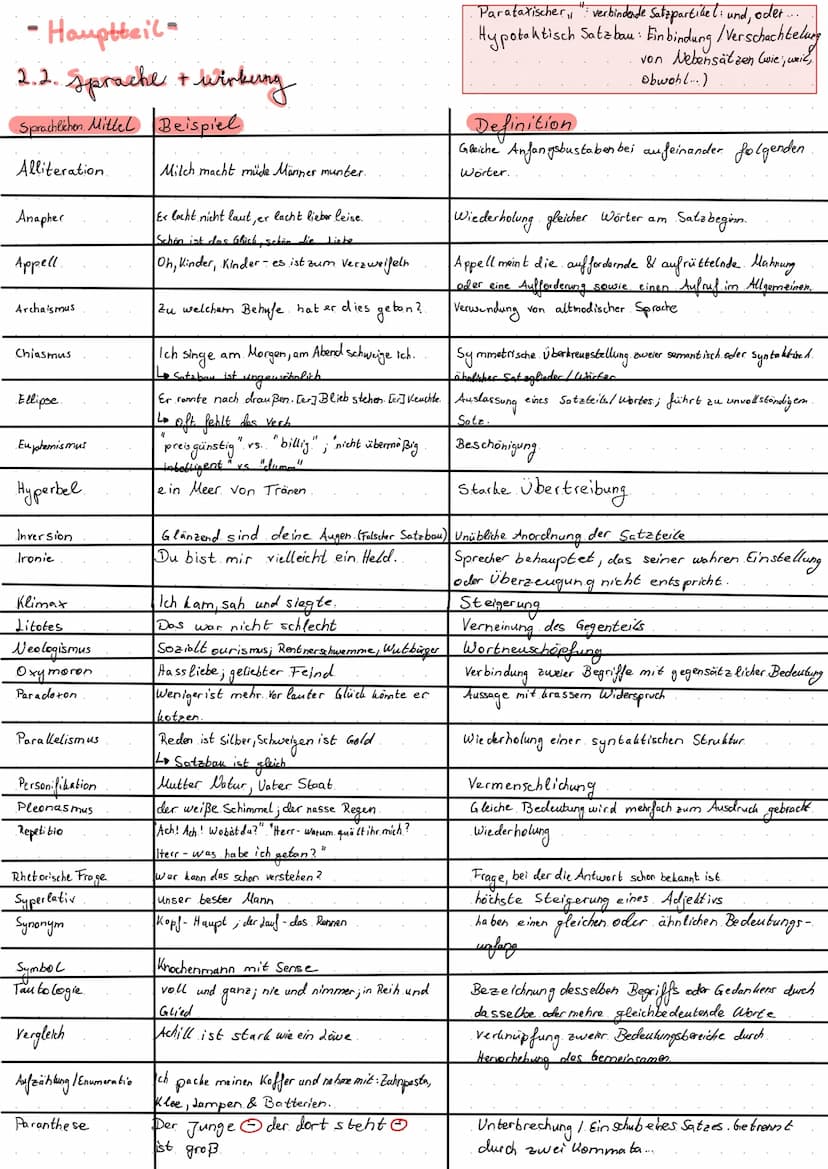 - Hauptteil -
2.2. Sprache + wirkung
Parataxischer „ ": verbindende Satzpartikel: und, oder...
Hypotaktisch Satzbau: Einbindung / Verschachtelung
von Nebensätzen (wie, weil,
obwohl...)
Sprachlichen Mittel Beispiel Definition
Gleiche Anfangsbustaben bei aufeinander folgenden
Alliteration Milch macht müde Männer munter. Wörter.
Anapher Er lacht nicht laut, er lacht lieber leise. Wiederholung gleicher Wörter am Satzbeginn.
Schön ist das Glück, schön die Liebe
Appell Oh, Kinder, Kinder - es ist zum verzweifeln Appell meint die auffordernde & aufrüttelnde Mahnung
oder eine Aufforderung sowie einen Aufruf im Allgemeinen.
Archaismus Zu welchem Behufe hat er dies getan? Verwendung von altmodischer Sprache
Chiasmus Ich singe am Morgen, am Abend schweige ich. Symmetrische Überkreuzstellung zweier semantisch oder syntaktisch
↳ Satzbau ist ungewöhnlich ähnlicher Satzglieder / Wörter
Ellipse Er rannte nach draußen. [er] Blieb stehen. [er] Keuchte. Auslassung eines Satzteils / Wortes; führt zu unvollständigem
↳ oft fehlt das Verb Satz.
Euphemismus "preisgünstig" vs. "billig"; "nicht übermäßig Beschönigung
intelligent" vs "dumm"
Hyperbel ein Meer von Tränen starke Übertreibung
Inversion Glänzend sind deine Augen. (falscher Satzbau) Unübliche Anordnung der Satzteile
Ironie Du bist mir vielleicht ein Held. Sprecher behauptet, das seiner wahren Einstellung
oder Überzeugung nicht entspricht.
Klimax Ich kam, sah und siegte. Steigerung
Litotes Das war nicht schlecht Verneinung des Gegenteils
Neologismus Sozialtourismus; Rentnerschwemme, Wutbürger Wortneuschöpfung
Oxymoron Hassliebe; geliebter Feind Verbindung zweier Begriffe mit gegensätzlicher Bedeutung
Paradoxon Weniger ist mehr. Vor lauter Glück könnte er Aussage mit krassem Widerspruch
kotzen.
Parallelismus Reden ist Silber, Schweigen ist Gold Wiederholung einer syntaktischen Struktur
↳ Satzbau ist gleich
Personifikation Mutter Natur, Vater Staat Vermenschlichung
Pleonasmus der weiße Schimmel; der nasse Regen Gleiche Bedeutung wird mehrfach zum Ausdruck gebracht
Repetitio "Ach! Ach! Wobist du?" "Herr - warum quält ihr mich? Wiederholung
Herr - was habe ich getan?"
Rhetorische Frage Wer kann das schon verstehen? Frage, bei der die Antwort schon bekannt ist
Superlativ unser bester Mann höchste Steigerung eines Adjektivs
Synonym Kopf - Haupt; der Lauf - das Rennen haben einen gleichen oder ähnlichen Bedeutungs-
umfang
Symbol Knochenmann mit Sense
Tautologie voll und ganz; nie und nimmer; in Reih und Bezeichnung desselben Begriffs oder Gedankens durch
Glied dasselbe oder mehre gleichbedeutende Worte
Vergleich Achill ist stark wie ein Löwe Verknüpfung zweier Bedeutungsbereiche durch
Hervorhebung des Gemeinsamen
Aufzählung / Enumeratio Ich packe meinen Koffer und nehme mit: Zahnpasta,
Klee, Lampen & Batterien.
Paranthese Der Junge - der dort steht - Unterbrechung / Einschub eines Satzes. Getrennt
ist groß durch zwei Kommata...